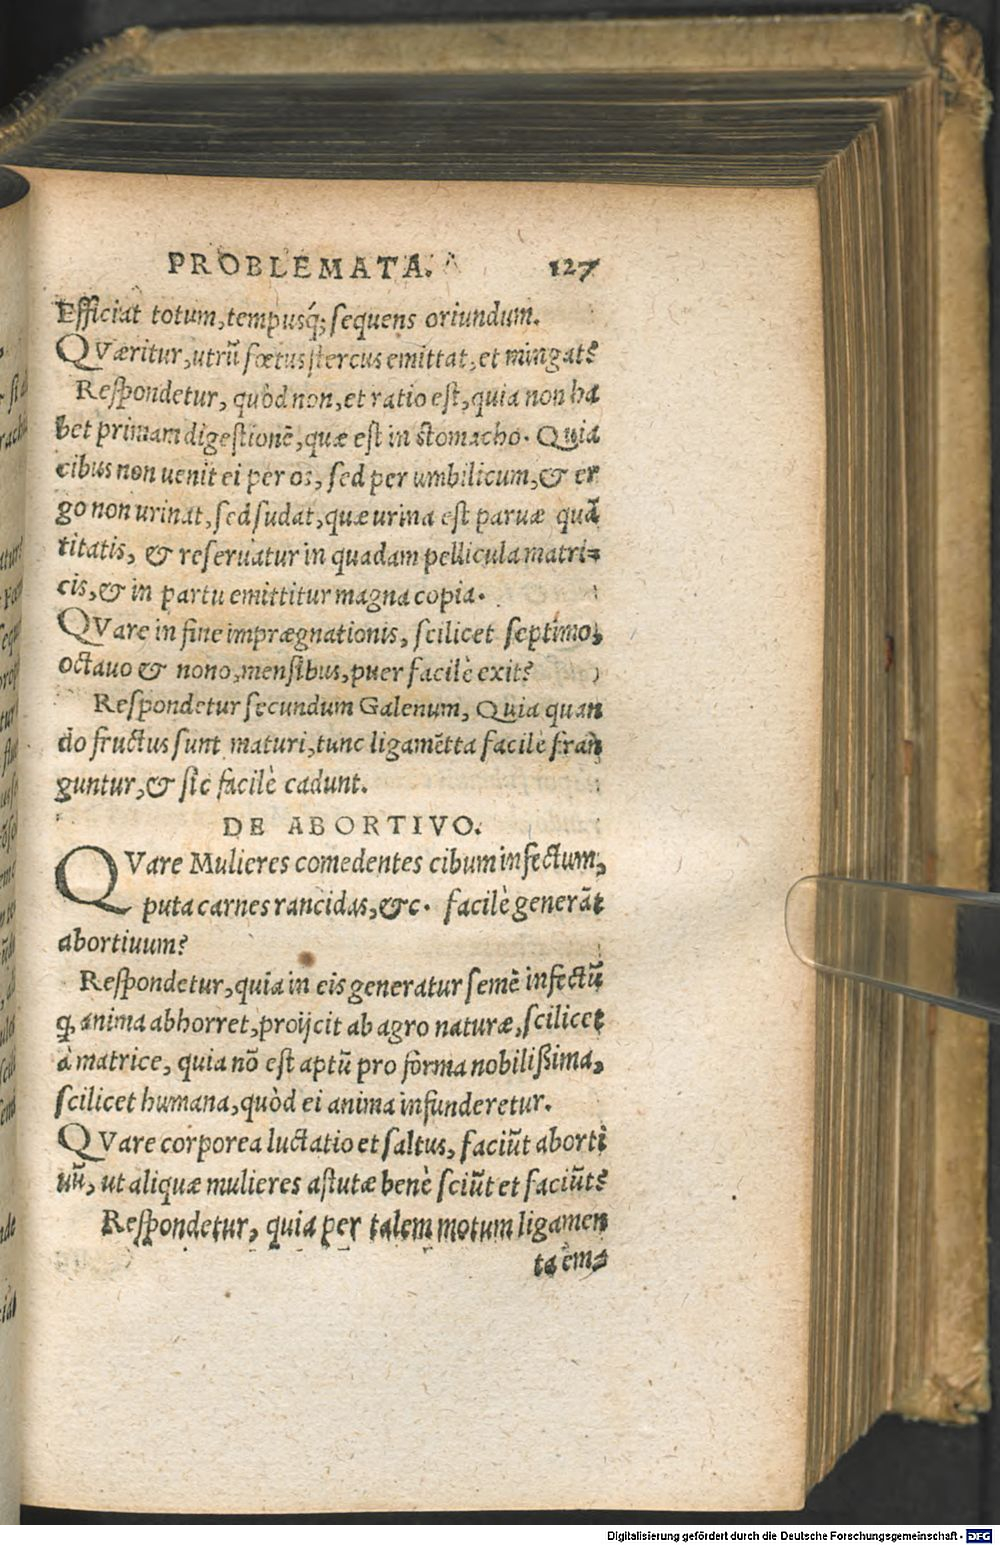 PROBLEMATA. 127
Efficiat totum, tempusq́; sequens oriundum.
QVæritur, utrũ fœtus stercus emittat, et mingat?
Respondetur, quòd non, et ratio est, quia non ha
bet primam digestionẽ, quæ est in stomacho. Quia
cibus non uenit ei per os, sed per umbilicum, & er
go non urinat, sed sudat, quæ urina est paruæ quã
titatis, & reseruatur in quadam pellicula matri=
cis, & in partu emittitur magna copia.
QVare in fine imprægnationis, scilicet septimo,
octauo & nono, mensibus, puer facilè exit?
Respondetur secundum Galenum, Quia quan
do fructus sunt maturi, tunc ligamẽtta facilè fran
guntur, & sic facilè cadunt.
DE ABORTIVO.
QVare Mulieres comedentes cibum infectum,
puta carnes rancidas, &c. facilè generãt
abortiuum?
Respondetur, quia in eis generatur semẽ infectũ
ꝙ anima abhorret, proijcit ab agro naturæ, scilicet
à matrice, quia nõ est aptũ pro forma nobilißima,
scilicet humana, quòd ei anima infunderetur.
QVare corporea luctatio et saltus, faciũt aborti
uũ, ut aliquæ mulieres astutæ benè sciũt et faciũt?
Respondetur, quia per talem motum ligamen
ta ema
Digitalisierung gefördert durch die Deutsche Forschungsgemeinschaft - DFG